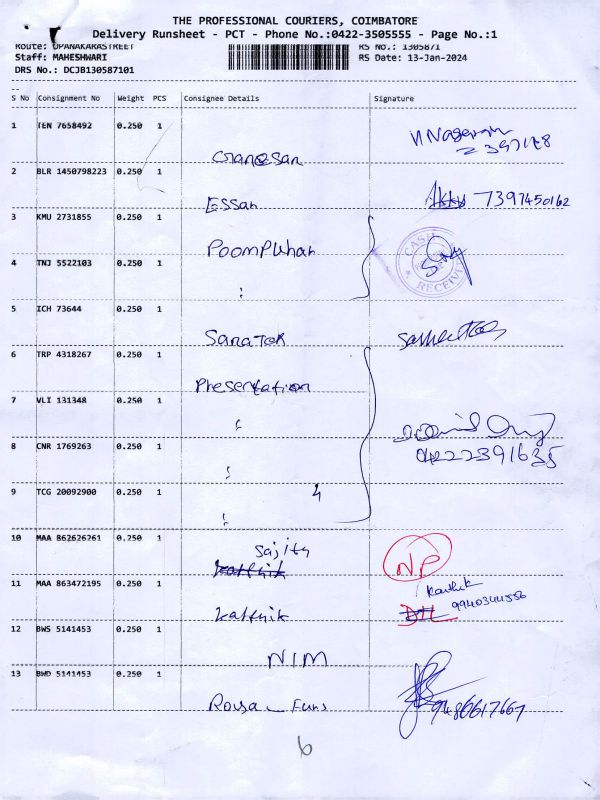 THE PROFESSIONAL COURIERS, COIMBATORE
Delivery Runsheet - PCT - Phone No.:0422-3505555 - Page No.:1
Route: OPANAKARASTREET RS No.: 1305871
Staff: MAHESHWARI RS Date: 13-Jan-2024
DRS No.: DCJB130587101
S No Consignment No Weight PCS Consignee Details Signature
1 TEN 7658492 0.250 1
Ganesan
2 BLR 1450798223 0.250 1
Essan 7397450162
3 KMU 2731855 0.250 1
Poompuhar
CASH RECEIVED
4 TNJ 5522103 0.250 1
5 ICH 73644 0.250 1
6 TRP 4318267 0.250 1
Presentation
7 VLI 131348 0.250 1
8 CNR 1769263 0.250 1
04222391635
9 TCG 20092900 0.250 1
4
10 MAA 862626261 0.250 1
Sajith NP
karthik
11 MAA 863472195 0.250 1
Karthik
karthik 9940344556
12 BWS 5141453 0.250 1
NIM
13 BWD 5141453 0.250 1
9486617667
6